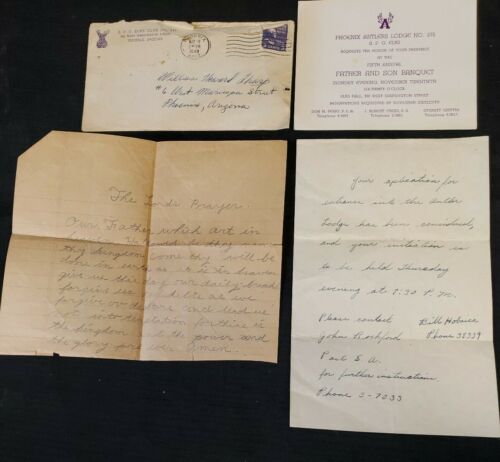 B.P.O. ELKS
PHOENIX, ARIZONA
PHOENIX
ARIZ.
William Howard Sharp
#6 West Maricopa Street
Phoenix, Arizona
A
PHOENIX ANTLERS LODGE NO. 215
B. P. O. ELKS
REQUESTS THE HONOR OF YOUR PRESENCE
AT THE
FIFTH ANNUAL
FATHER AND SON BANQUET
MONDAY EVENING, NOVEMBER
O'CLOCK
ELKS HALL, WEST WASHINGTON STREET
RESERVATIONS REQUESTED BY NOVEMBER
Telephone
Telephone
Telephone
The Lords Prayer.
Our Father which art in
thy kingdom come thy will be
done in earth as it is in heaven
give us this day our daily bread
forgive us our debts as we
forgive our debtors and lead us
not into temptation for thine is
the kingdom and the power and
the glory forever amen.
Your aplication for
entrance into the Antler
Lodge has been considered,
and your initation is
to be held Thursday
evening at 7:30 P.M.
Please contact
Bill
John Rockford
Phone 36339
Paul S. A.
for further instruction.
Phone 3-7233